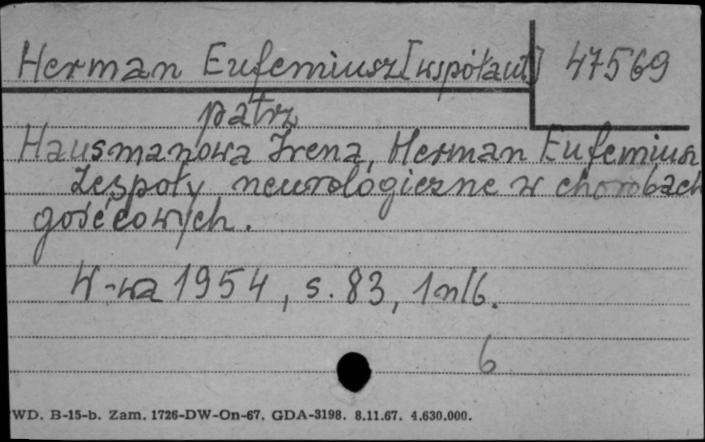 Herman Eufemiusz [współaut] 47569
patrz
Hausmanowa Irena, Herman Eufemiusz
Zespoły neurologiczne w chorobach
gośćcowych.
W-wa 1954, s. 83, 1 nlb.
6
WD. B-15-b. Zam. 1726-DW-On-67. GDA-3198. 8.11.67. 4.630.000.